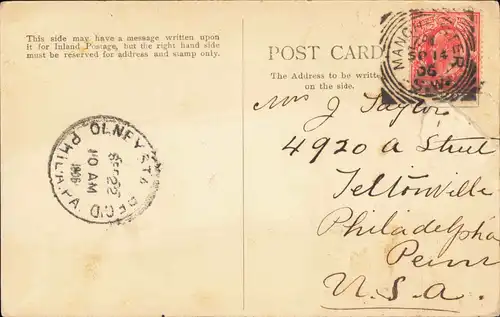 This side may have a message written upon
it for Inland Postage, but the right hand side
must be reserved for address and stamp only.
POST CARD
The Address to be written
on the side.
MANCHESTER
SP 14
06
S.W.
OLNEY STA. REC'D.
SEP 22
10 AM
1906
PHILA. PA.
Mrs J Taylor
4920 A Street
Feltonville
Philadelpha
Penn
U.S.A.